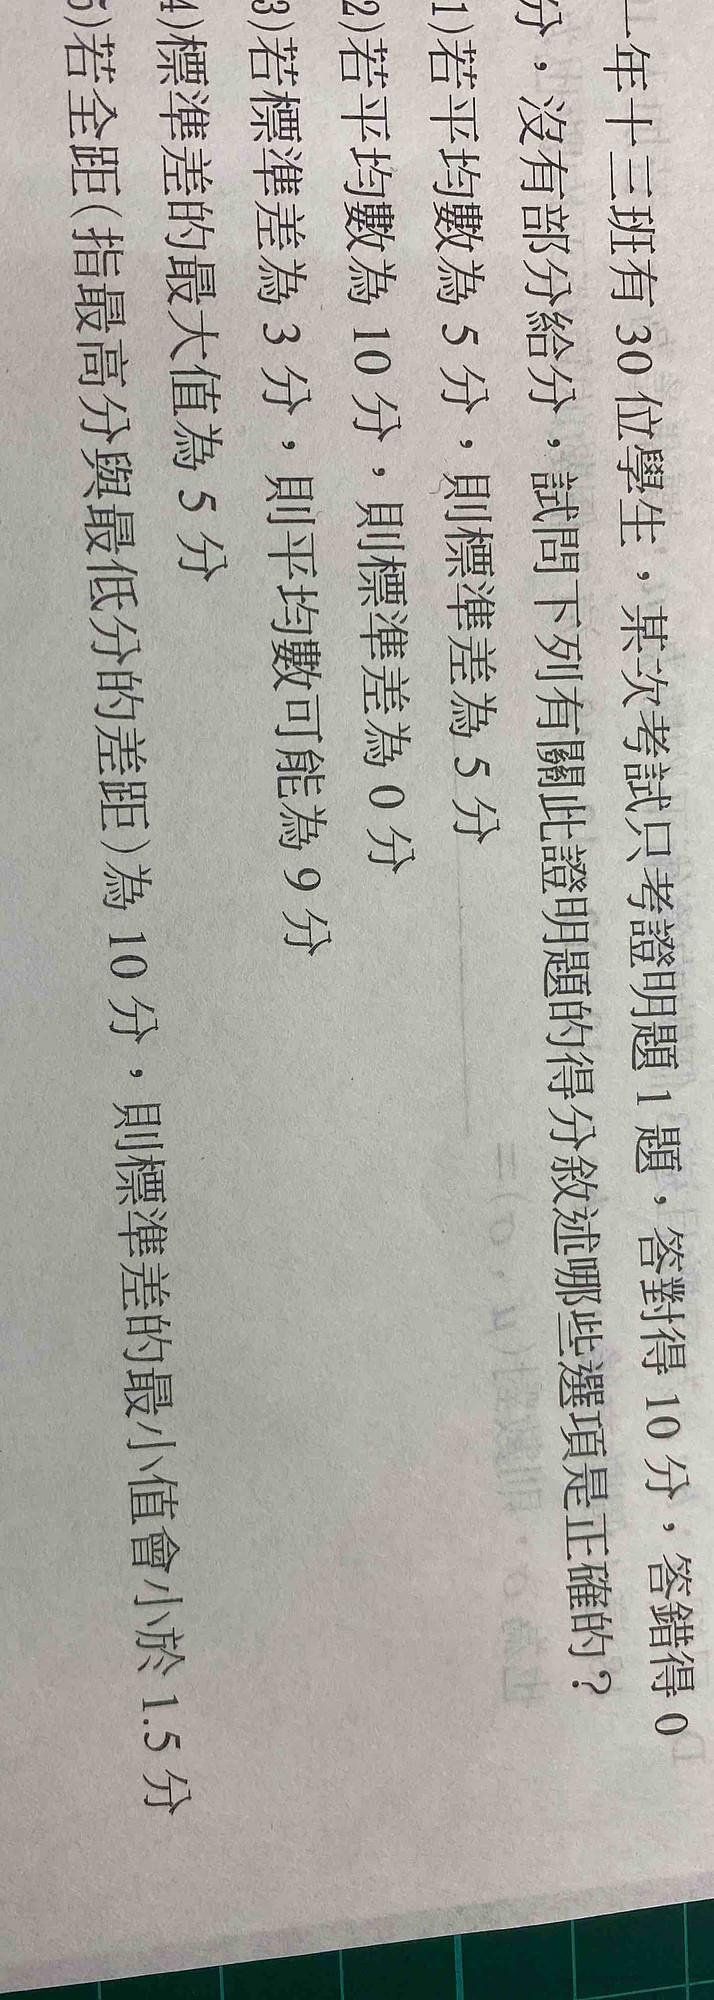 一年十三班有 30 位學生，某次考試只考證明題 1 題，答對得 10 分，答錯得 0
分，沒有部分給分，試問下列有關此證明題的得分敘述哪些選項是正確的？
1)若平均數為 5 分，則標準差為 5 分
2)若平均數為 10 分，則標準差為 0 分
3)若標準差為 3 分，則平均數可能為 9 分
4)標準差的最大值為 5 分
5)若全距(指最高分與最低分的差距)為 10 分，則標準差的最小值會小於 1.5 分